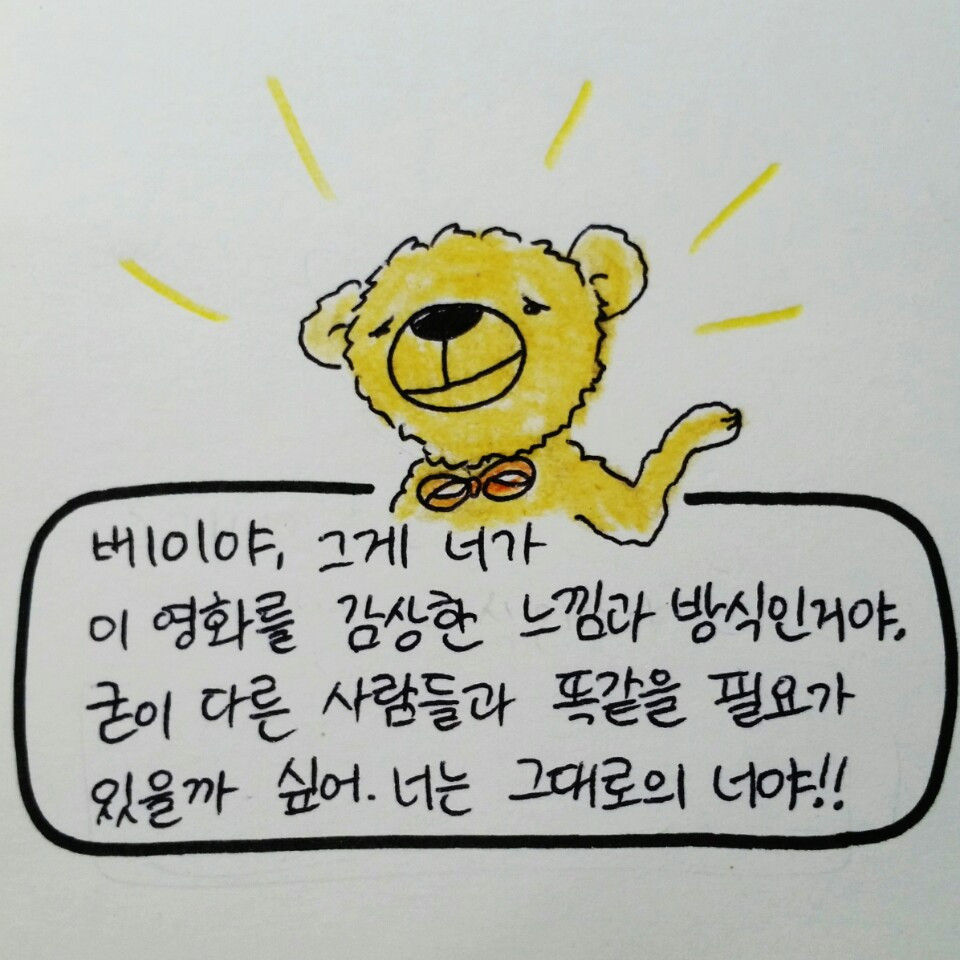 베이야, 그게 너가
이 영화를 감상한 느낌과 방식인거야.
굳이 다른 사람들과 똑같을 필요가
있을까 싶어. 너는 그대로의 너야!!